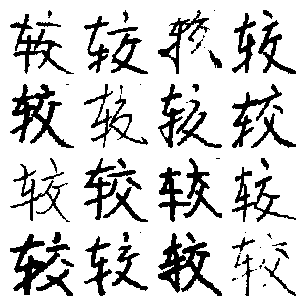 较较较较
较较较较
较较较较
较较较较